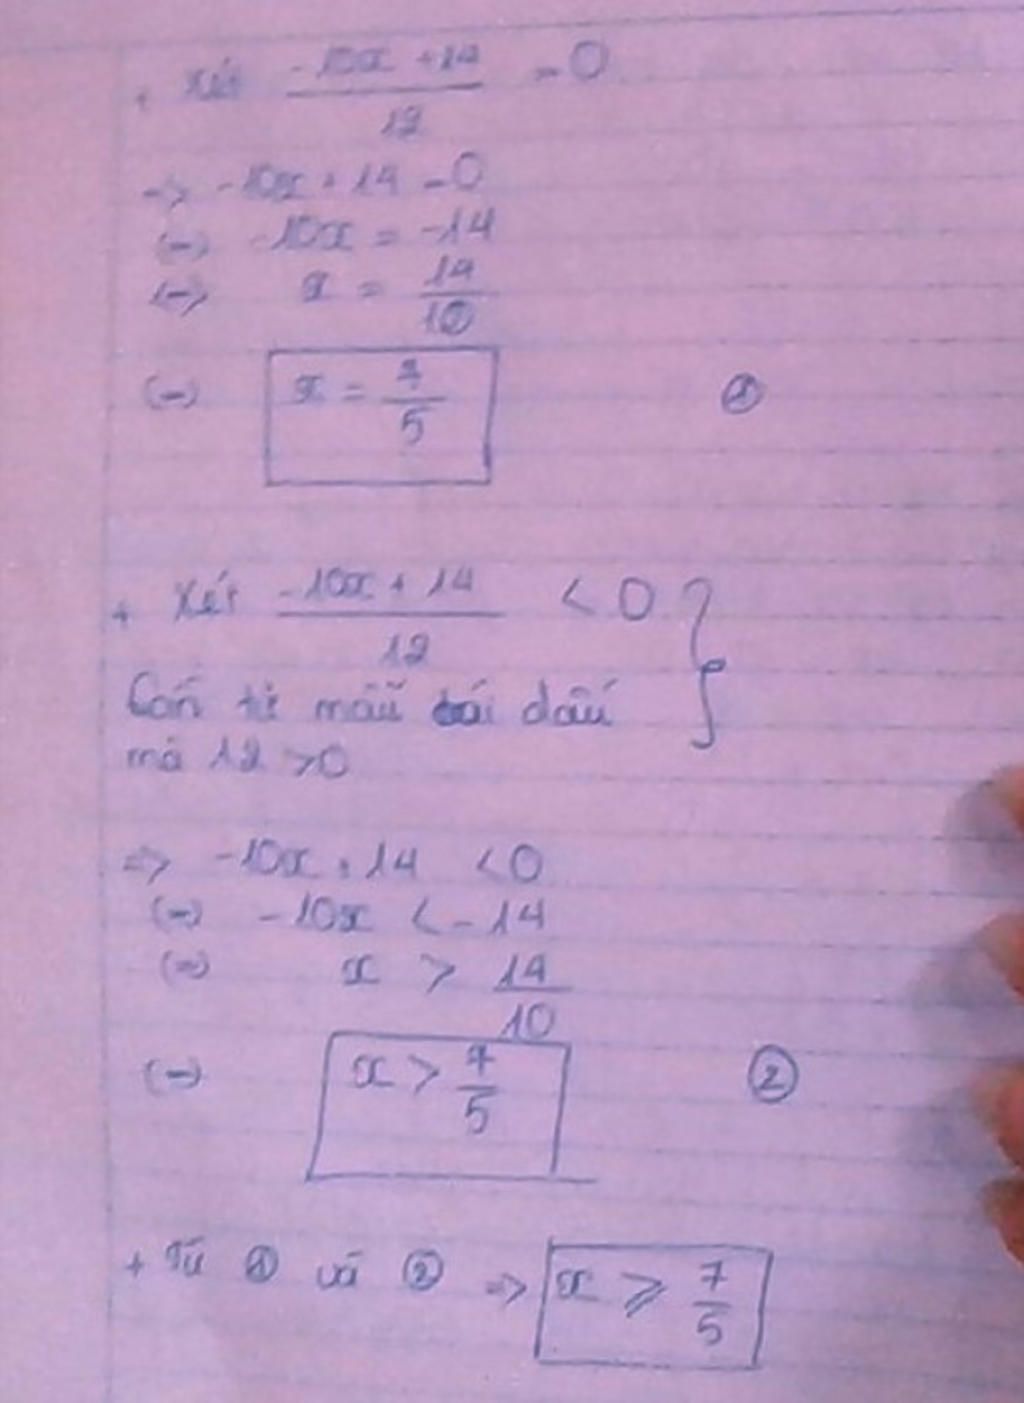 + Xét (-10x + 14)/12 = 0
=> -10x + 14 = 0
(=) -10x = -14
(=) x = 14/10
(=) x = 7/5 ①
+ Xét (-10x + 14)/12 < 0
tử mẫu trái dấu
mà 12 > 0
=> -10x + 14 < 0
(=) -10x < -14
(=) x > 14/10
(=) x > 7/5 ②
+ Từ ① và ② => x ⩾ 7/5